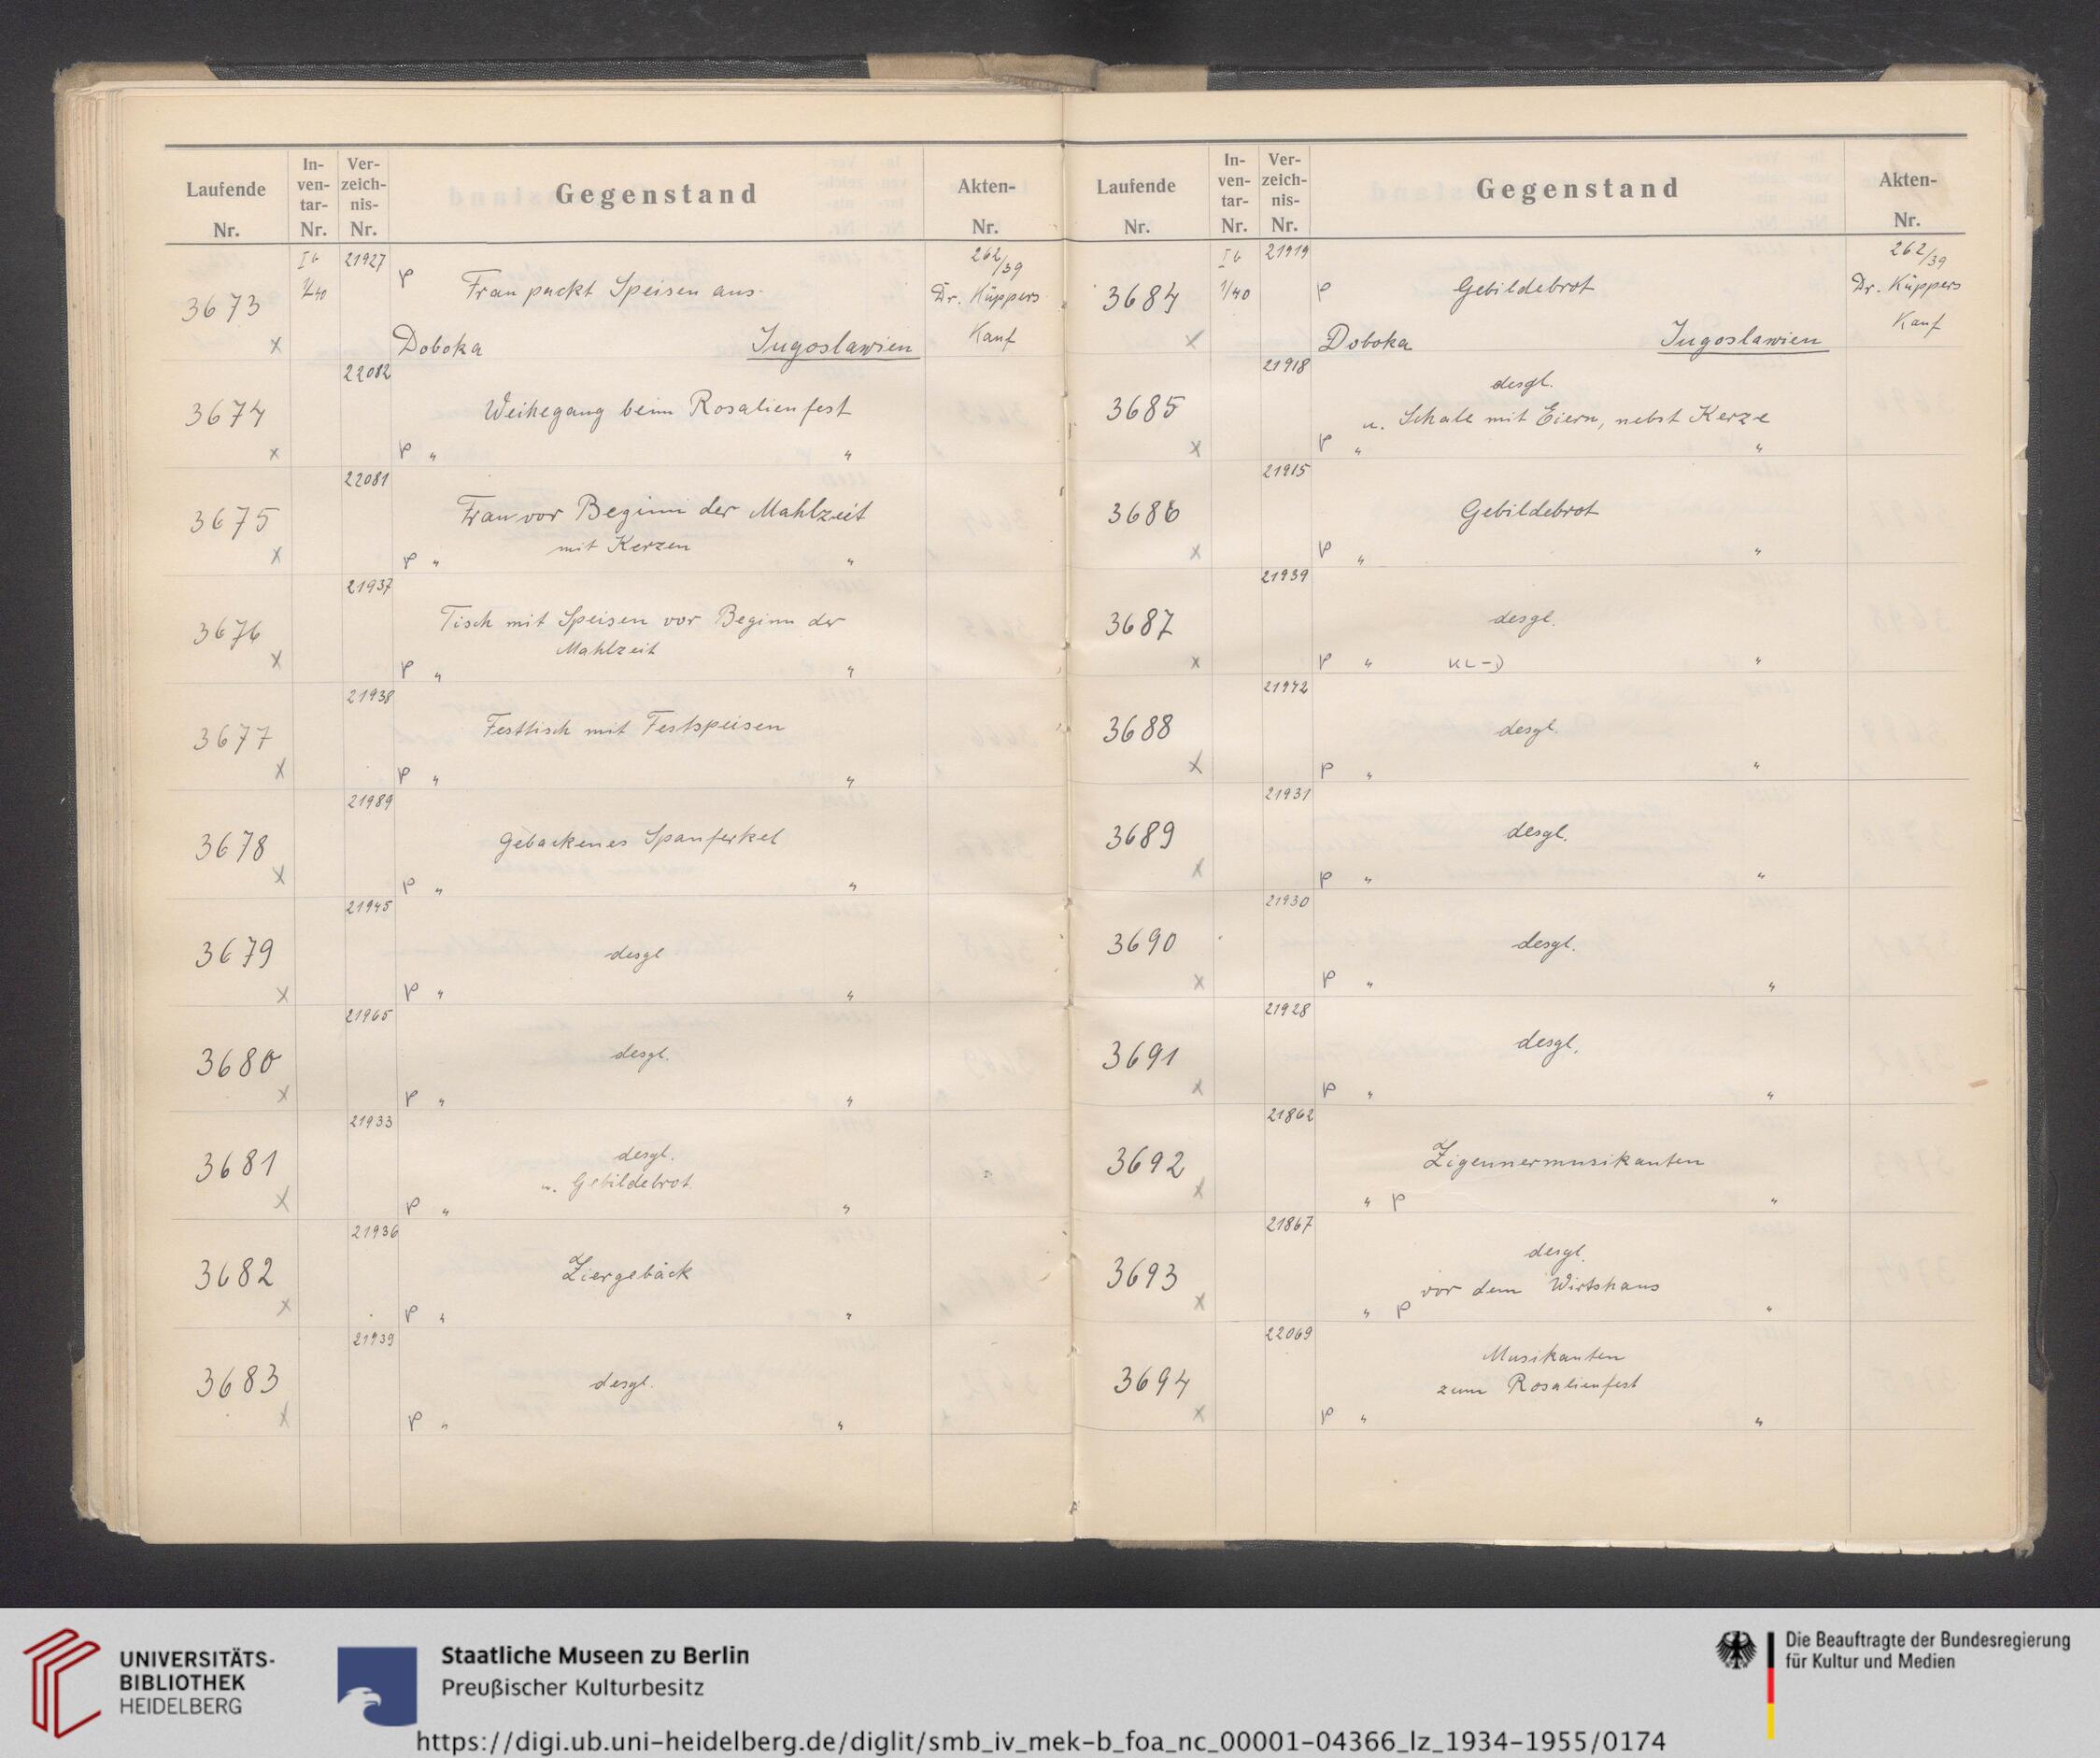 Laufende Nr.
In-ven-tar-Nr.
Ver-zeich-nis-Nr.
Gegenstand
Akten-Nr.
3673 x
I b
21927
p Frau packt Speisen aus
Doboka Jugoslawien
262/39
Dr. Küppers
Kauf
3674 x
22082
Weihegang beim Rosalienfest
p " "
3675 x
22081
Frau vor Beginn der Mahlzeit
mit Kerzen
p " "
3676 x
21937
Tisch mit Speisen vor Beginn der
Mahlzeit
p " "
3677 x
21938
Festtisch mit Festspeisen
p " "
3678 x
21989
Gebackenes Spanferkel
p " "
3679 x
21945
desgl
p " "
3680 x
21965
desgl.
p " "
3681 x
21933
desgl.
u. Gebildebrot
p " "
3682 x
21936
Ziergebäck
p " "
3683 x
21939
desgl.
p " "
Laufende Nr.
In-ven-tar-Nr.
Ver-zeich-nis-Nr.
Gegenstand
Akten-Nr.
3684 x
I b
1/40
21919
p Gebildebrot
Doboka Jugoslawien
262/39
Dr. Küppers
Kauf
3685 x
21918
desgl.
u. Schale mit Eiern, nebst Kerze
p " "
3686 x
21915
Gebildebrot
p " "
3687 x
21939
desgl.
p " "
3688 x
21942
desgl.
p " "
3689 x
21931
desgl.
p " "
3690 x
21930
desgl.
p " "
3691 x
21928
desgl.
p " "
3692 x
21862
Zigeunermusikanten
" p "
3693 x
21867
desgl.
vor dem Wirtshaus
" p "
3694 x
22069
Musikanten
zum Rosalienfest
p " "
UNIVERSITÄTS-
BIBLIOTHEK
HEIDELBERG
Staatliche Museen zu Berlin
Preußischer Kulturbesitz
Die Beauftragte der Bundesregierung
für Kultur und Medien
https://digi.ub.uni-heidelberg.de/diglit/smb_iv_mek-b_foa_nc_00001-04366_lz_1934-1955/0174